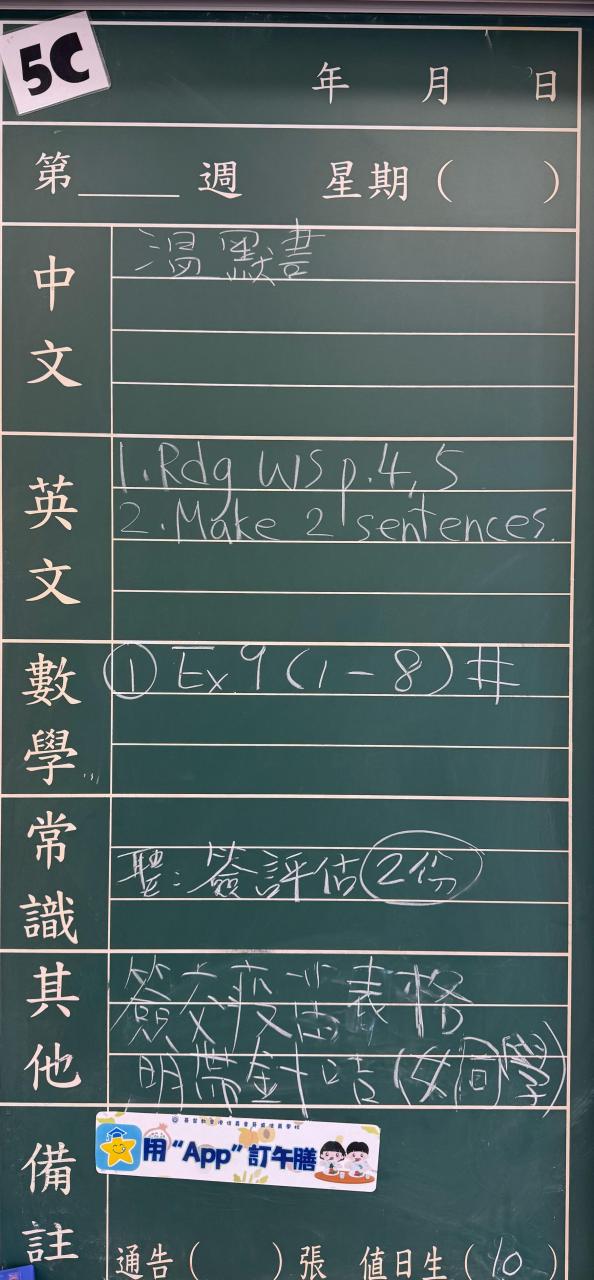 5C
年 月 日
第____週 星期( )
中文
溫默書
英文
1. Rdg WS p.4,5
2. Make 2 sentences.
數學
① Ex 9 (1-8) #
常識
聖: 簽評估 2份
其他
簽交疫苗表格
明帶針咭(女同學)
備註
用“App”訂午膳
通告( )張 值日生(10)